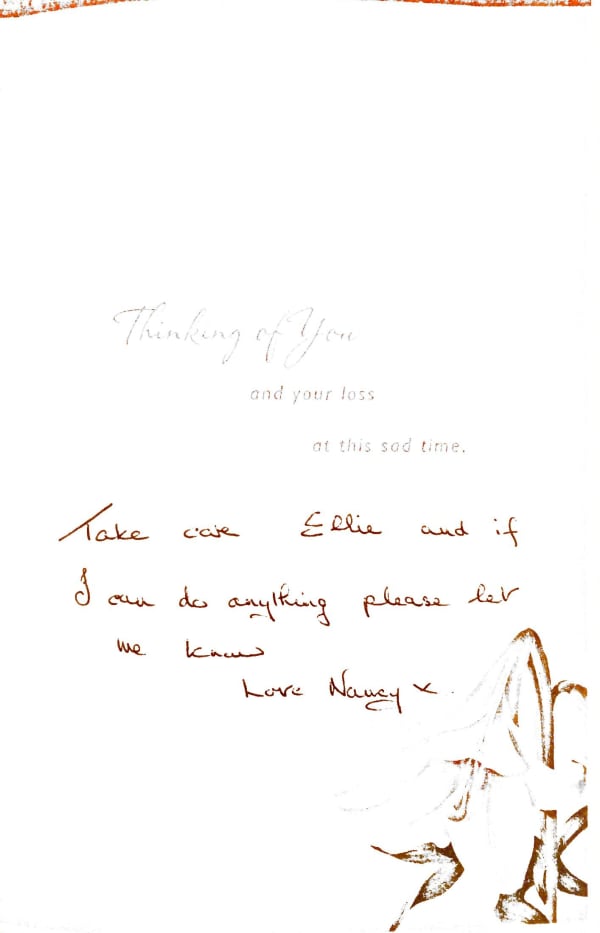 Thinking of You
and your loss
at this sad time.
Take care Ellie and if
I can do anything please let
me know
Love Nancy x.